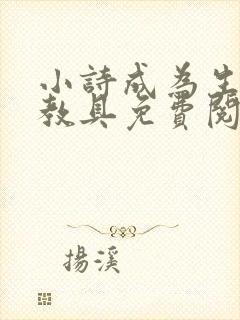 小詩成為生
教具免費閱
揚溪